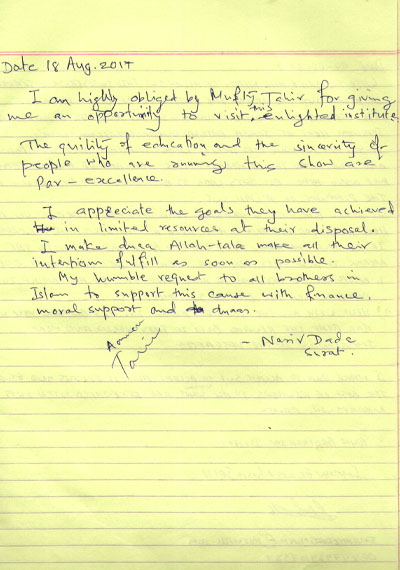 Date 18 Aug. 2017
I am highly obliged by Mufti Tahir for giving
me an opportunity to visit this enlighted institute.
The quility of education and the sincerity of
people who are running this show are
Par - excellence.
I appreciate the goals they have achieved
in limited resources at their disposal.
I make duaa Allah-tala make all their
intention fulfill as soon as possible.
My humble request to all brothers in
Islam to support this cause with finance,
moral support and duaas.
- Nasir Dada
Surat.